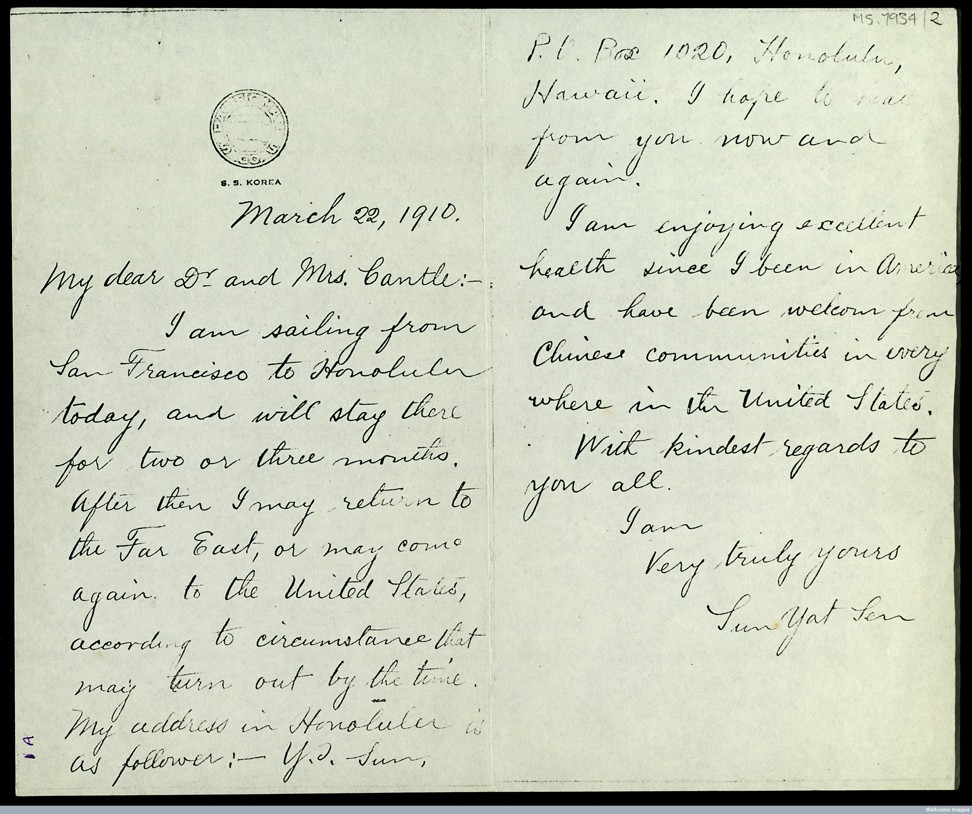 MS.7934/2
S. S. KOREA
March 22, 1910.
My dear Dr and Mrs. Cantle:-
I am sailing from
San Francisco to Honolulu
today, and will stay there
for two or three months.
After then I may return to
the Far East, or may come
again. to the United States,
according to circumstance that
may turn out by the time.
My address in Honolulu is
as follower:- Y.S. Sun,
1A
P.O. Box 1020, Honolulu,
Hawaii. I hope to hear
from you now and
again.
I am enjoying excellent
health since I been in America,
and have been welcom from
Chinese communities in every
where in the United States.
With kindest regards to
you all.
I am
Very truly yours
Sun Yat Sen
Wellcome Images